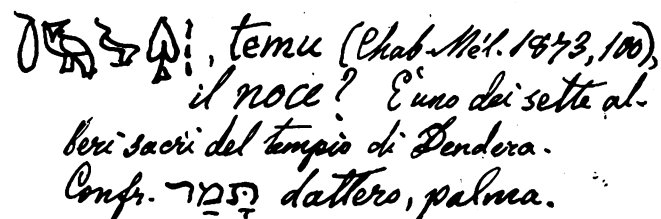 , temu (Chab. Mél. 1873, 100),
il noce? È uno dei sette al-
beri sacri del tempio di Dendera.
Confr. תָּמָר dattero, palma.